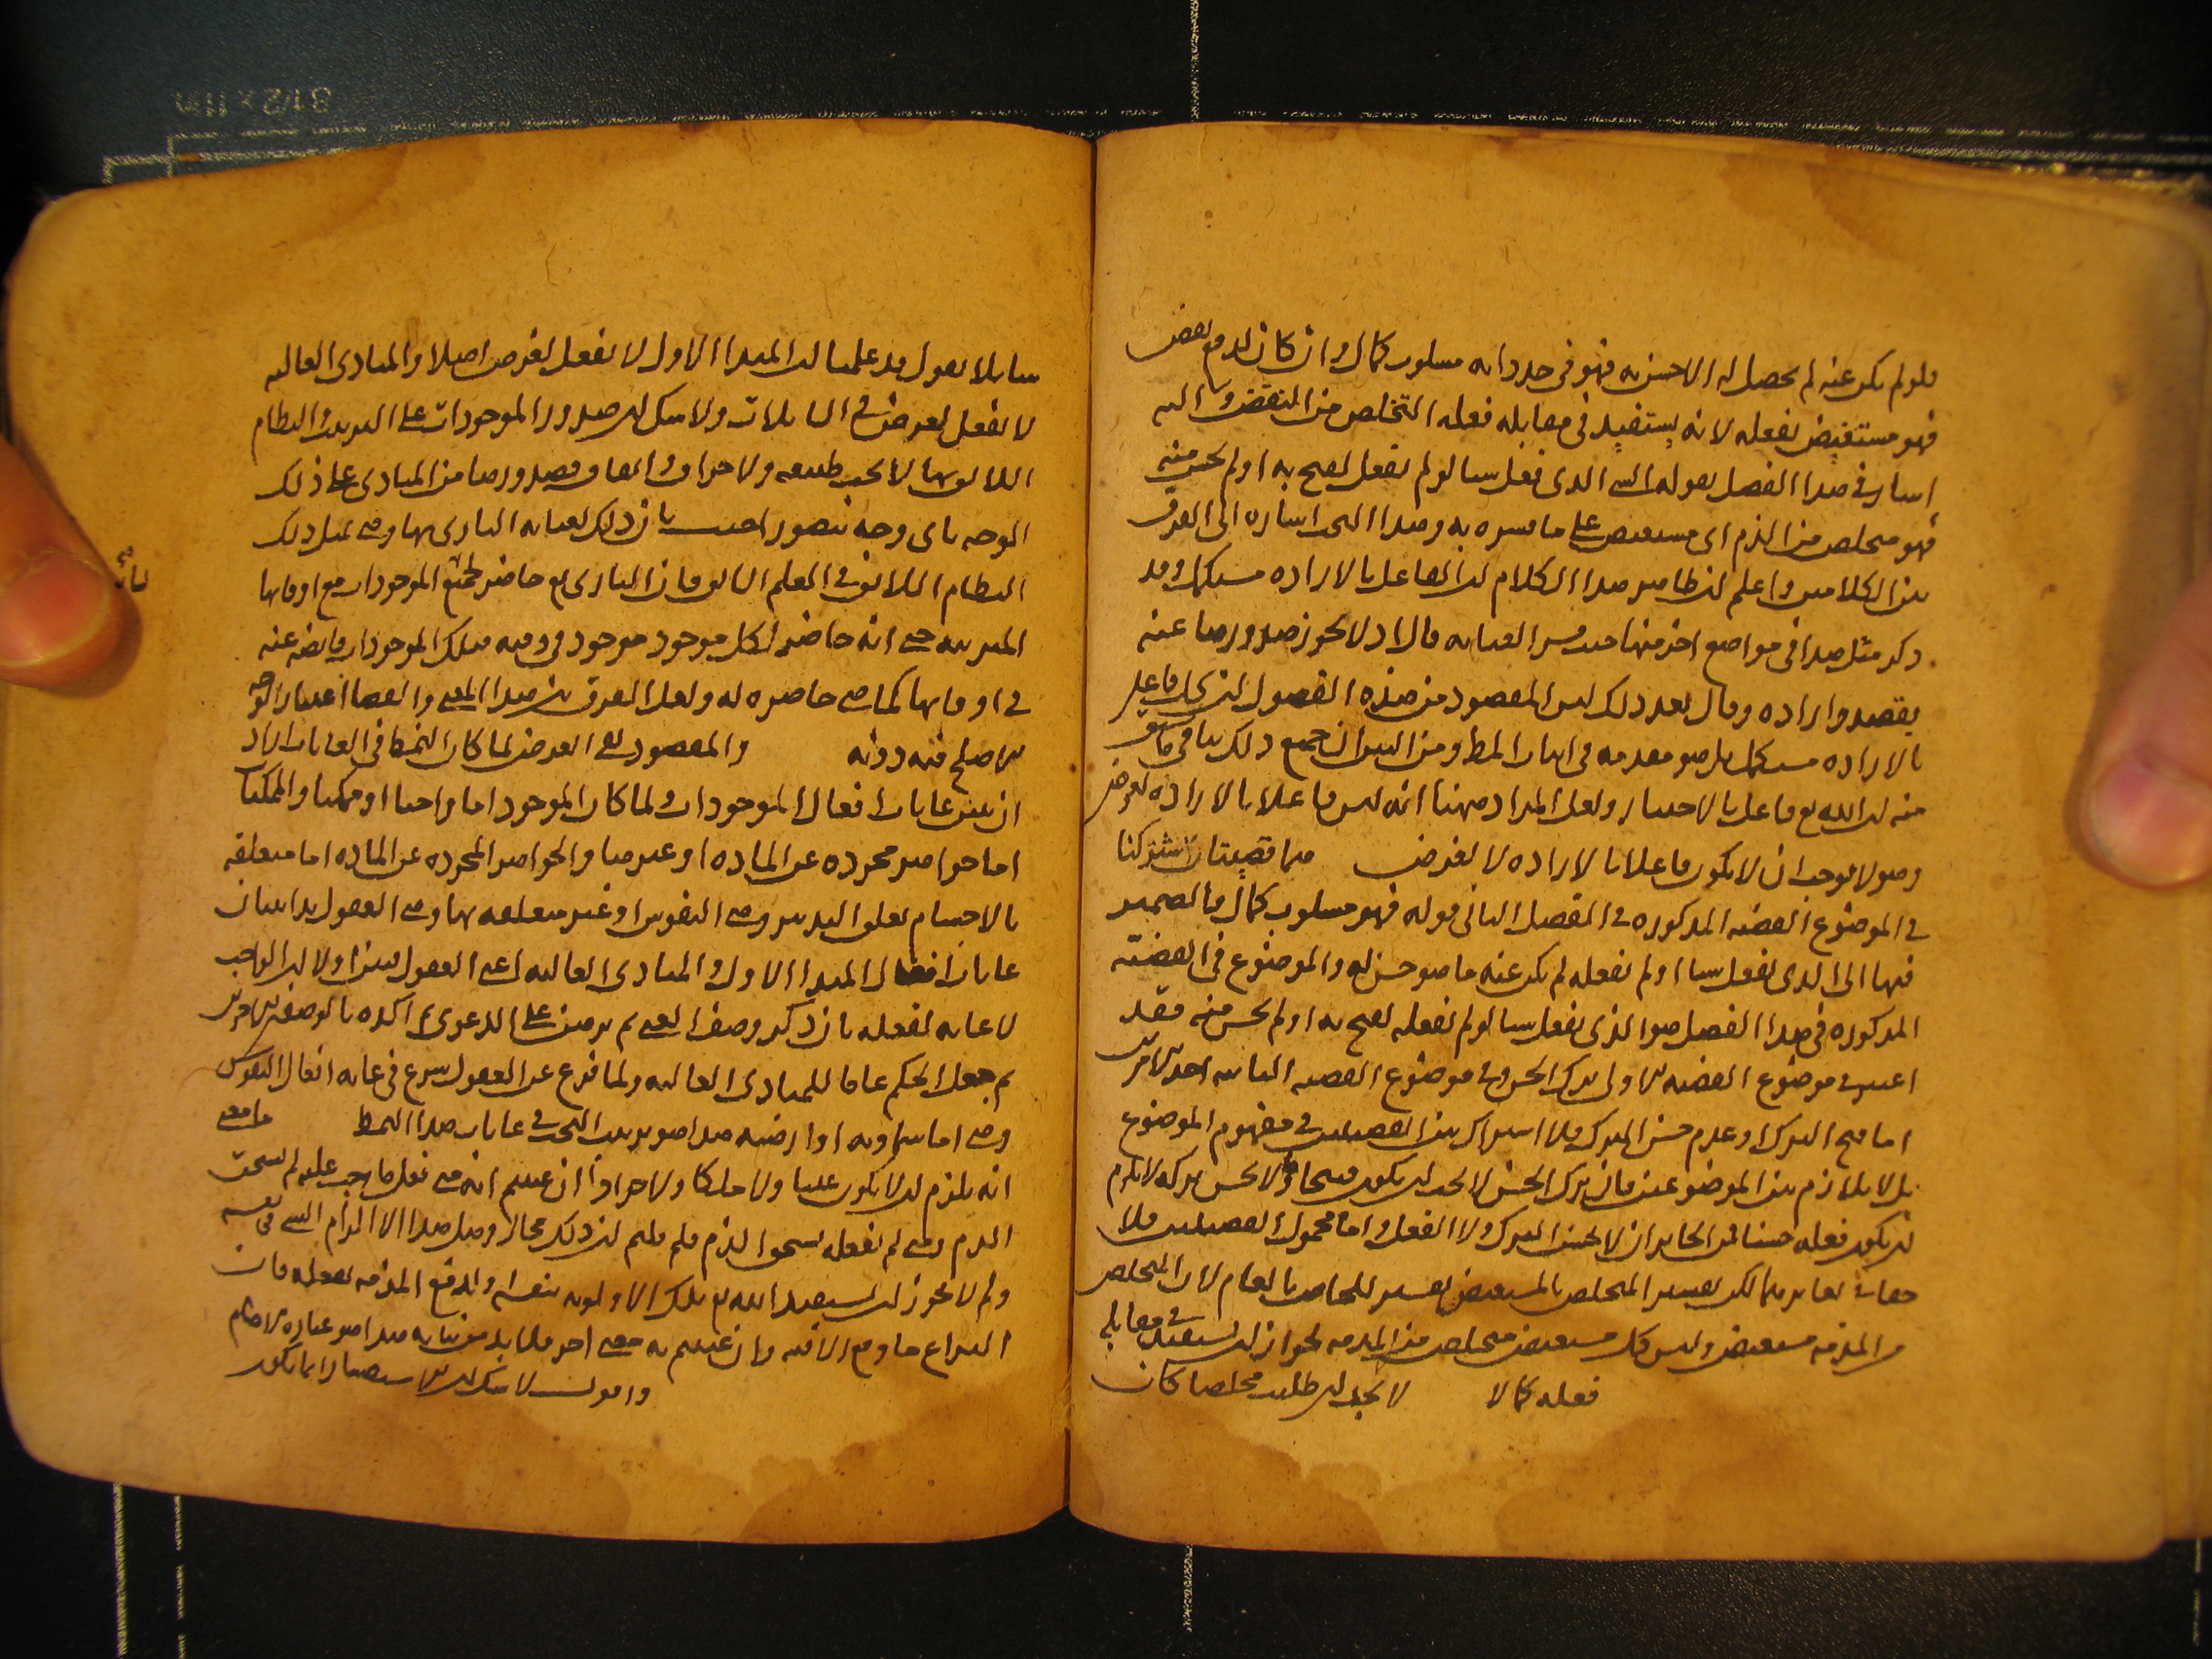 فلو لم يكن عنه لم يحصل له الاحسن به فهو في حد ذاته مسلوب كمال وان كان لدفع نقص
فهو مستفيض بفعله لانه يستفيد في مقابله فعله التخلص من النقص واليه
اشار في هذا الفصل بقوله الشي الذي يفعل شيا لو لم يفعل لقبح به او لم يحسن منه
فهو متخلص من الذم اي مستعيض على ما فسره به وهذا البحث اشاره الى الفرق
بين الكلامين واعلم ان ظاهر هذا الكلام ان الفاعل بالاراده مستكمل وقد
ذكر مثل هذا في مواضع اخر منها حيث فسر العنايه قال اذ لا يجوز صدورها عنه
بقصد واراده وقال بعد ذلك ليس المقصود من هذه الفصول ان كل فاعل
بالاراده مستكمل بل هو مقدمه في اثبات المط ومن البين ان جميع ذلك ينافي ما سبق
منه ان الله تع فاعل بالاختيار ولعل المراد ههنا انه ليس فاعلا بالاراده لغرض
وهو لا يوجب ان لا يكون فاعلا بالاراده لا لغرض هما قضيتان اشتركتا
في الموضوع القضيه المذكوره في الفصل الثاني قوله فهو مسلوب كمال فالضمير
فيها الى الذي يفعل شيا او لم يفعله لم يكن عنه ما هو حسن له والموضوع في القضيه
المذكوره في هذا الفصل هو الذي يفعل شيا لو لم يفعله لقبح به او لم يحسن منه فقد
اعتبر في موضوع القضيه الاولى ترك الحسن وفي موضوع القضيه الثانيه احد الامرين
اما قبح الترك او عدم حسن الترك فلا اشتراك بين القضيتين في مفهوم الموضوع
بل لا تلازم بين الموضوعين فان ترك الحسن لا يجب ان يكون قبيحا ولا يحسن تركه لا يلزم
ان يكون فعله حسنا فمن الجايز ان لا يحسن الترك ولا الفعل واما محمولا القضيتين فلا
خفا في تغايرهما لكن تفسير المتخلص بالمستعيض تفسير للخاص بالعام لان المتخلص
من المذمه مستعيض وليس كل مستعيض متخلص من المذمه لجواز ان يستفيد في مقابله
فعله كمالا لا تجد ان طلبت مخلصا كان
سايلا يقول قد علمنا ان المبدا الاول لا يفعل لغرض اصلا والمبادي العاليه
لا تفعل لغرض في السافلات ولا شك ان صدور الموجودات على الترتيب والنظام
اللايق بها لا بحسب طبيعه ولا جزاف واتفاق فصدورها من المبادي على ذلك
الوجه باي وجه يتصور اجيب بان ذلك لعنايه الباري بها وهي تمثل ذلك
النظام اللايق في العلم السابق فان الباري تع حاضر لجميع الموجودات مع اوقاتها
المترتبه حتى انه حاضر لكل موجود موجود في وقته فتلك الموجودات فايضه عنه
في اوقاتها كما هي حاضره له ولعل الفرق بين هذا المعنى والقضا اعتبار الوجه
الاصلح فيه دونه والمقصود نفي الغرض لما كان النمط في الغايات اراد
ان يبين غايات افعال الموجودات ولما كان الموجود اما واجبا او ممكنا والممكنات
اما جواهر مجرده عن الماده او غيرها والجواهر المجرده عن الماده اما متعلقه
بالاجسام تعلق التدبير وهي النفوس او غير متعلقه بها وهي العقول بدا ببيان
غايات افعال المبدا الاول والمبادي العاليه اعني العقول فبين اولا ان الواجب
لا غايه لفعله بان ذكر وصف الغني ثم برهن على الدعوى ثم اكده بالوصفين الاخرين
ثم جعل الحكم عاما للمبادي العاليه ولما فرغ عن العقول شرع في غايه افعال النفوس
وهي اما سماويه او ارضيه هذا هو ترتيب البحث في غايات هذا النمط ما معنى
انه يلزم ان لا يكون غنيا ولا ملكا ولا جوادا ان عنيتم انه متى فعل ما يجب عليه لم يستحق
الذم ومتى لم يفعله استحق الذم فلم قلتم ان ذلك محال وهل هذا الا الزام الشي في نفسه
ولم لا يجوز ان يستفيد الله تع تلك الاولويه بنفسه ولدفع المذمه بفعله فان
النزاع ما وقع الا فيه وان عنيتم به معنى اخر فلا بد من بيانه هذا هو عباره الامام
واقول لا شك ان الاستفسار انما يكون